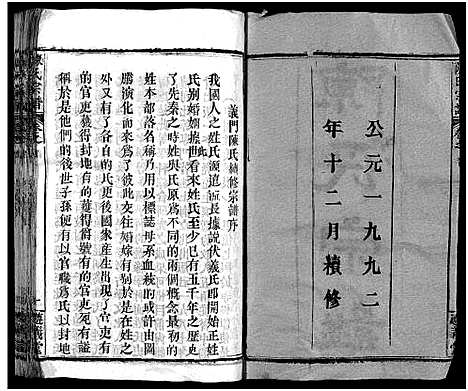 公元一九九二
年十二月續修
義門陳氏續修宗譜序
我國人之姓氏源遠流長據說伏羲氏即開始正姓
氏別婚姻據此看來姓氏至少已有五千年之歷史
了先秦之時姓與氏原爲不同的兩個概念最初的
姓本部落名稱乃用以標誌母系血統的或許由圖
騰演化而來爲了彼此交往婚嫁有別於是在姓之
下出現了氏的官更後國家産生出現了官更有
的官更獲得封地有的獲得徽官有的官更死有謚
稱於是他們的後世子孫或以官職爲氏以封地